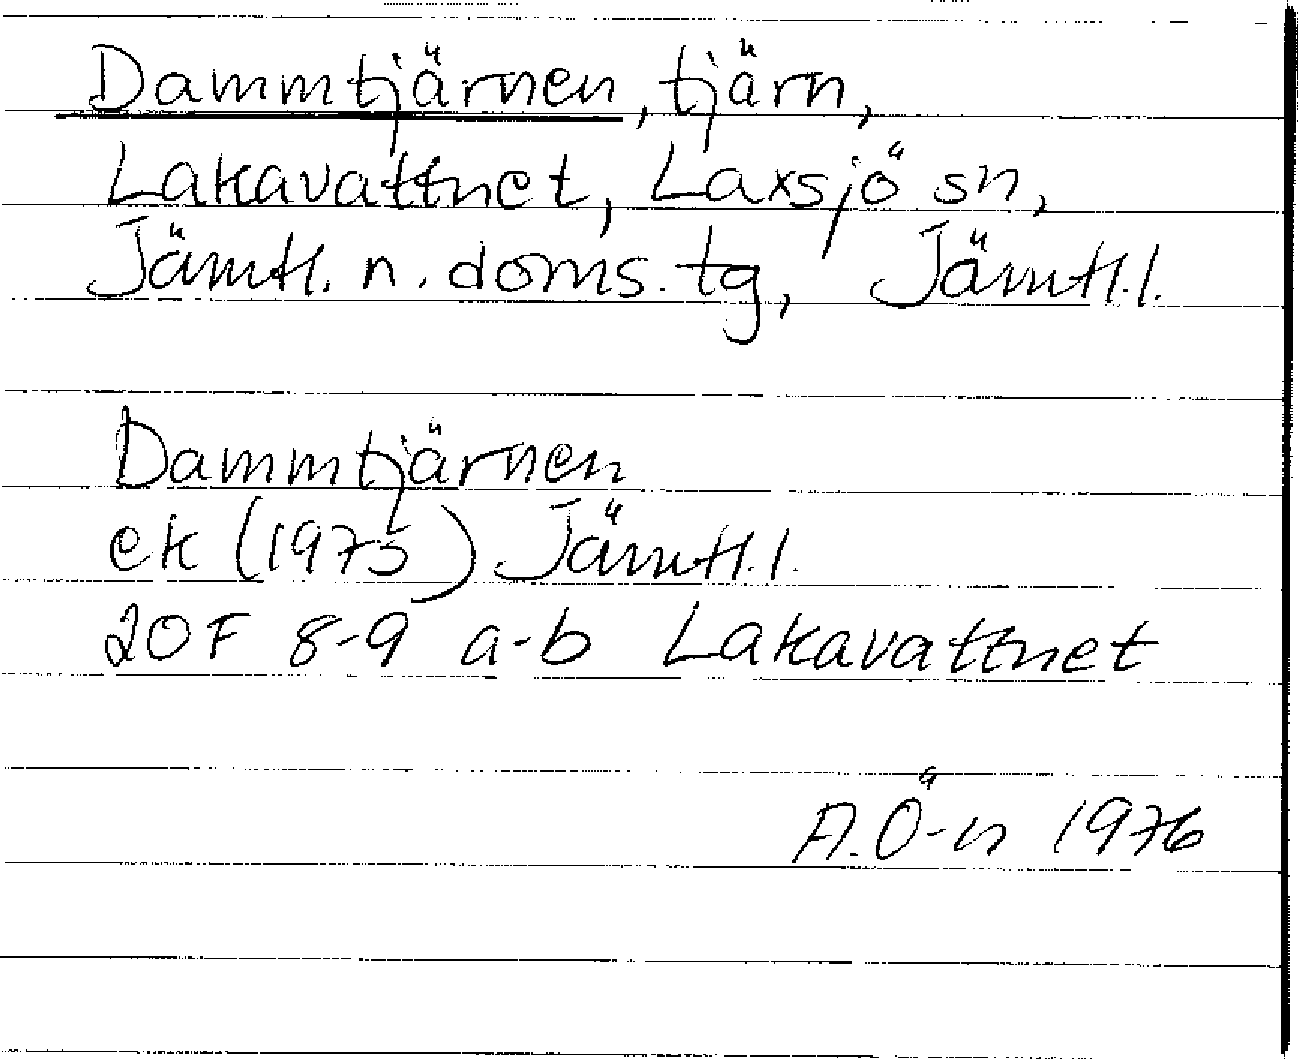 Dammtjärnen, tjärn,
Lakavattnet, Laxsjö sn,
Jämtl. n. doms. tg, Jämtl.l.
Dammtjärnen
ek (1975) Jämtl.l.
20F 8-9 a-b Lakavattnet
A.Ö-n 1976